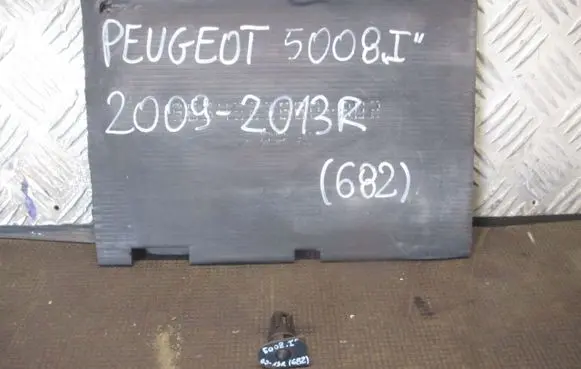 PEUGEOT 5008„I"
2009-2013R
(682)
5008„I"
09-13R (682)